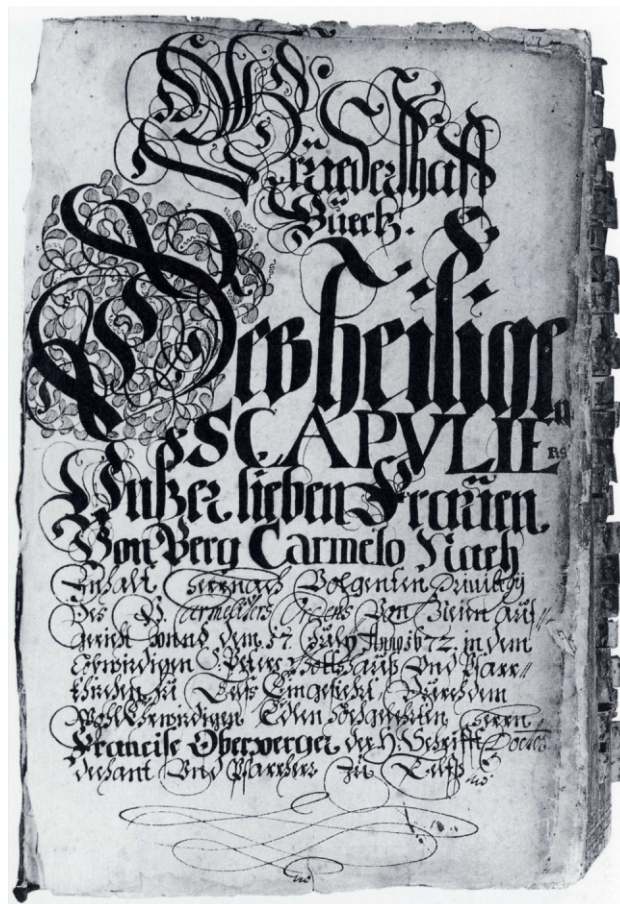 Bruederschafft
Buech.
Des heiligen
SCAPVLIERS
Vnßer lieben Frauen
Von Berg Carmelo Nach
Inhalt hernach Volgenten Privilegy
Des Carmeliters Ordens Von Wienn auf„
gericht vnnd dem 17. July Anno 1672. in dem
Ehrwirdigen S. Peters Gottshauß Vnd Pfarr„
khirchen zu Telfs Eingefiehrt, Durch dem
Wohl Ehrwirdigen Edlen hochgelehrten Herrn
Francisc Oberperger der H: Schrifft Doctor
dechant Vnd Pfarrherr zu Telfs